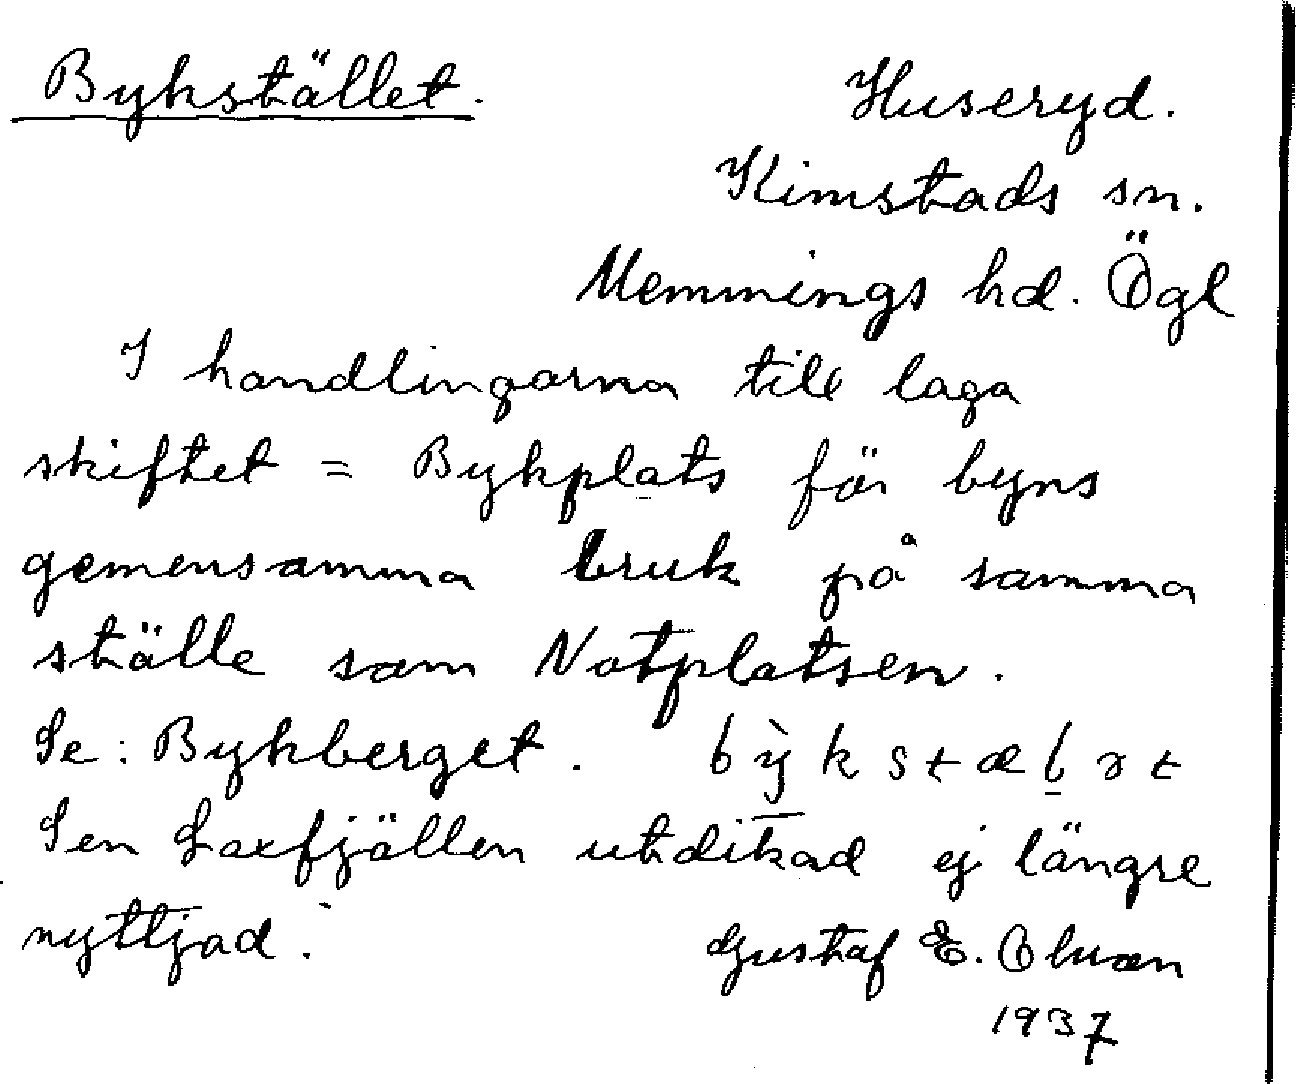 Bykstället.
Huseryd.
Kimstads sn.
Memmings hd. Ögl
I handlingarna till laga
skiftet = Bykplats för byns
gemensamma bruk på samma
ställe som Notplatsen.
Se: Bykberget. bỳkstæl̠ət
Sen Laxfjällen utdikad ej längre
nyttjad.
Gustaf E.
1937